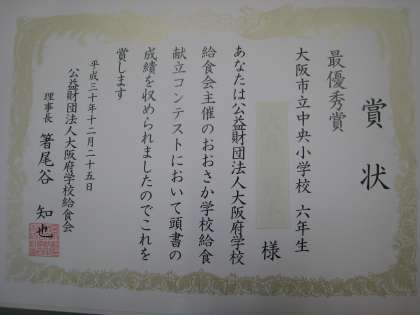 賞状
最優秀賞
大阪市立中央小学校 六年生
様
あなたは公益財団法人大阪府学校
給食会主催のおおさか学校給食
献立コンテストにおいて頭書の
成績を収められましたのでこれを
賞します
平成三十年十二月二十五日
公益財団法人大阪府学校給食会
理事長 箸尾谷 知也